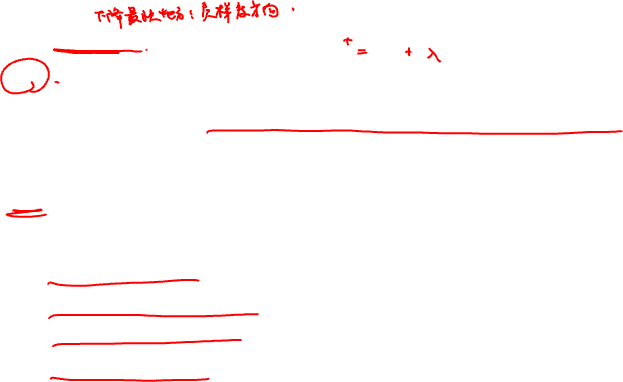 下降最快地方：负梯度方向.
+ = + λ